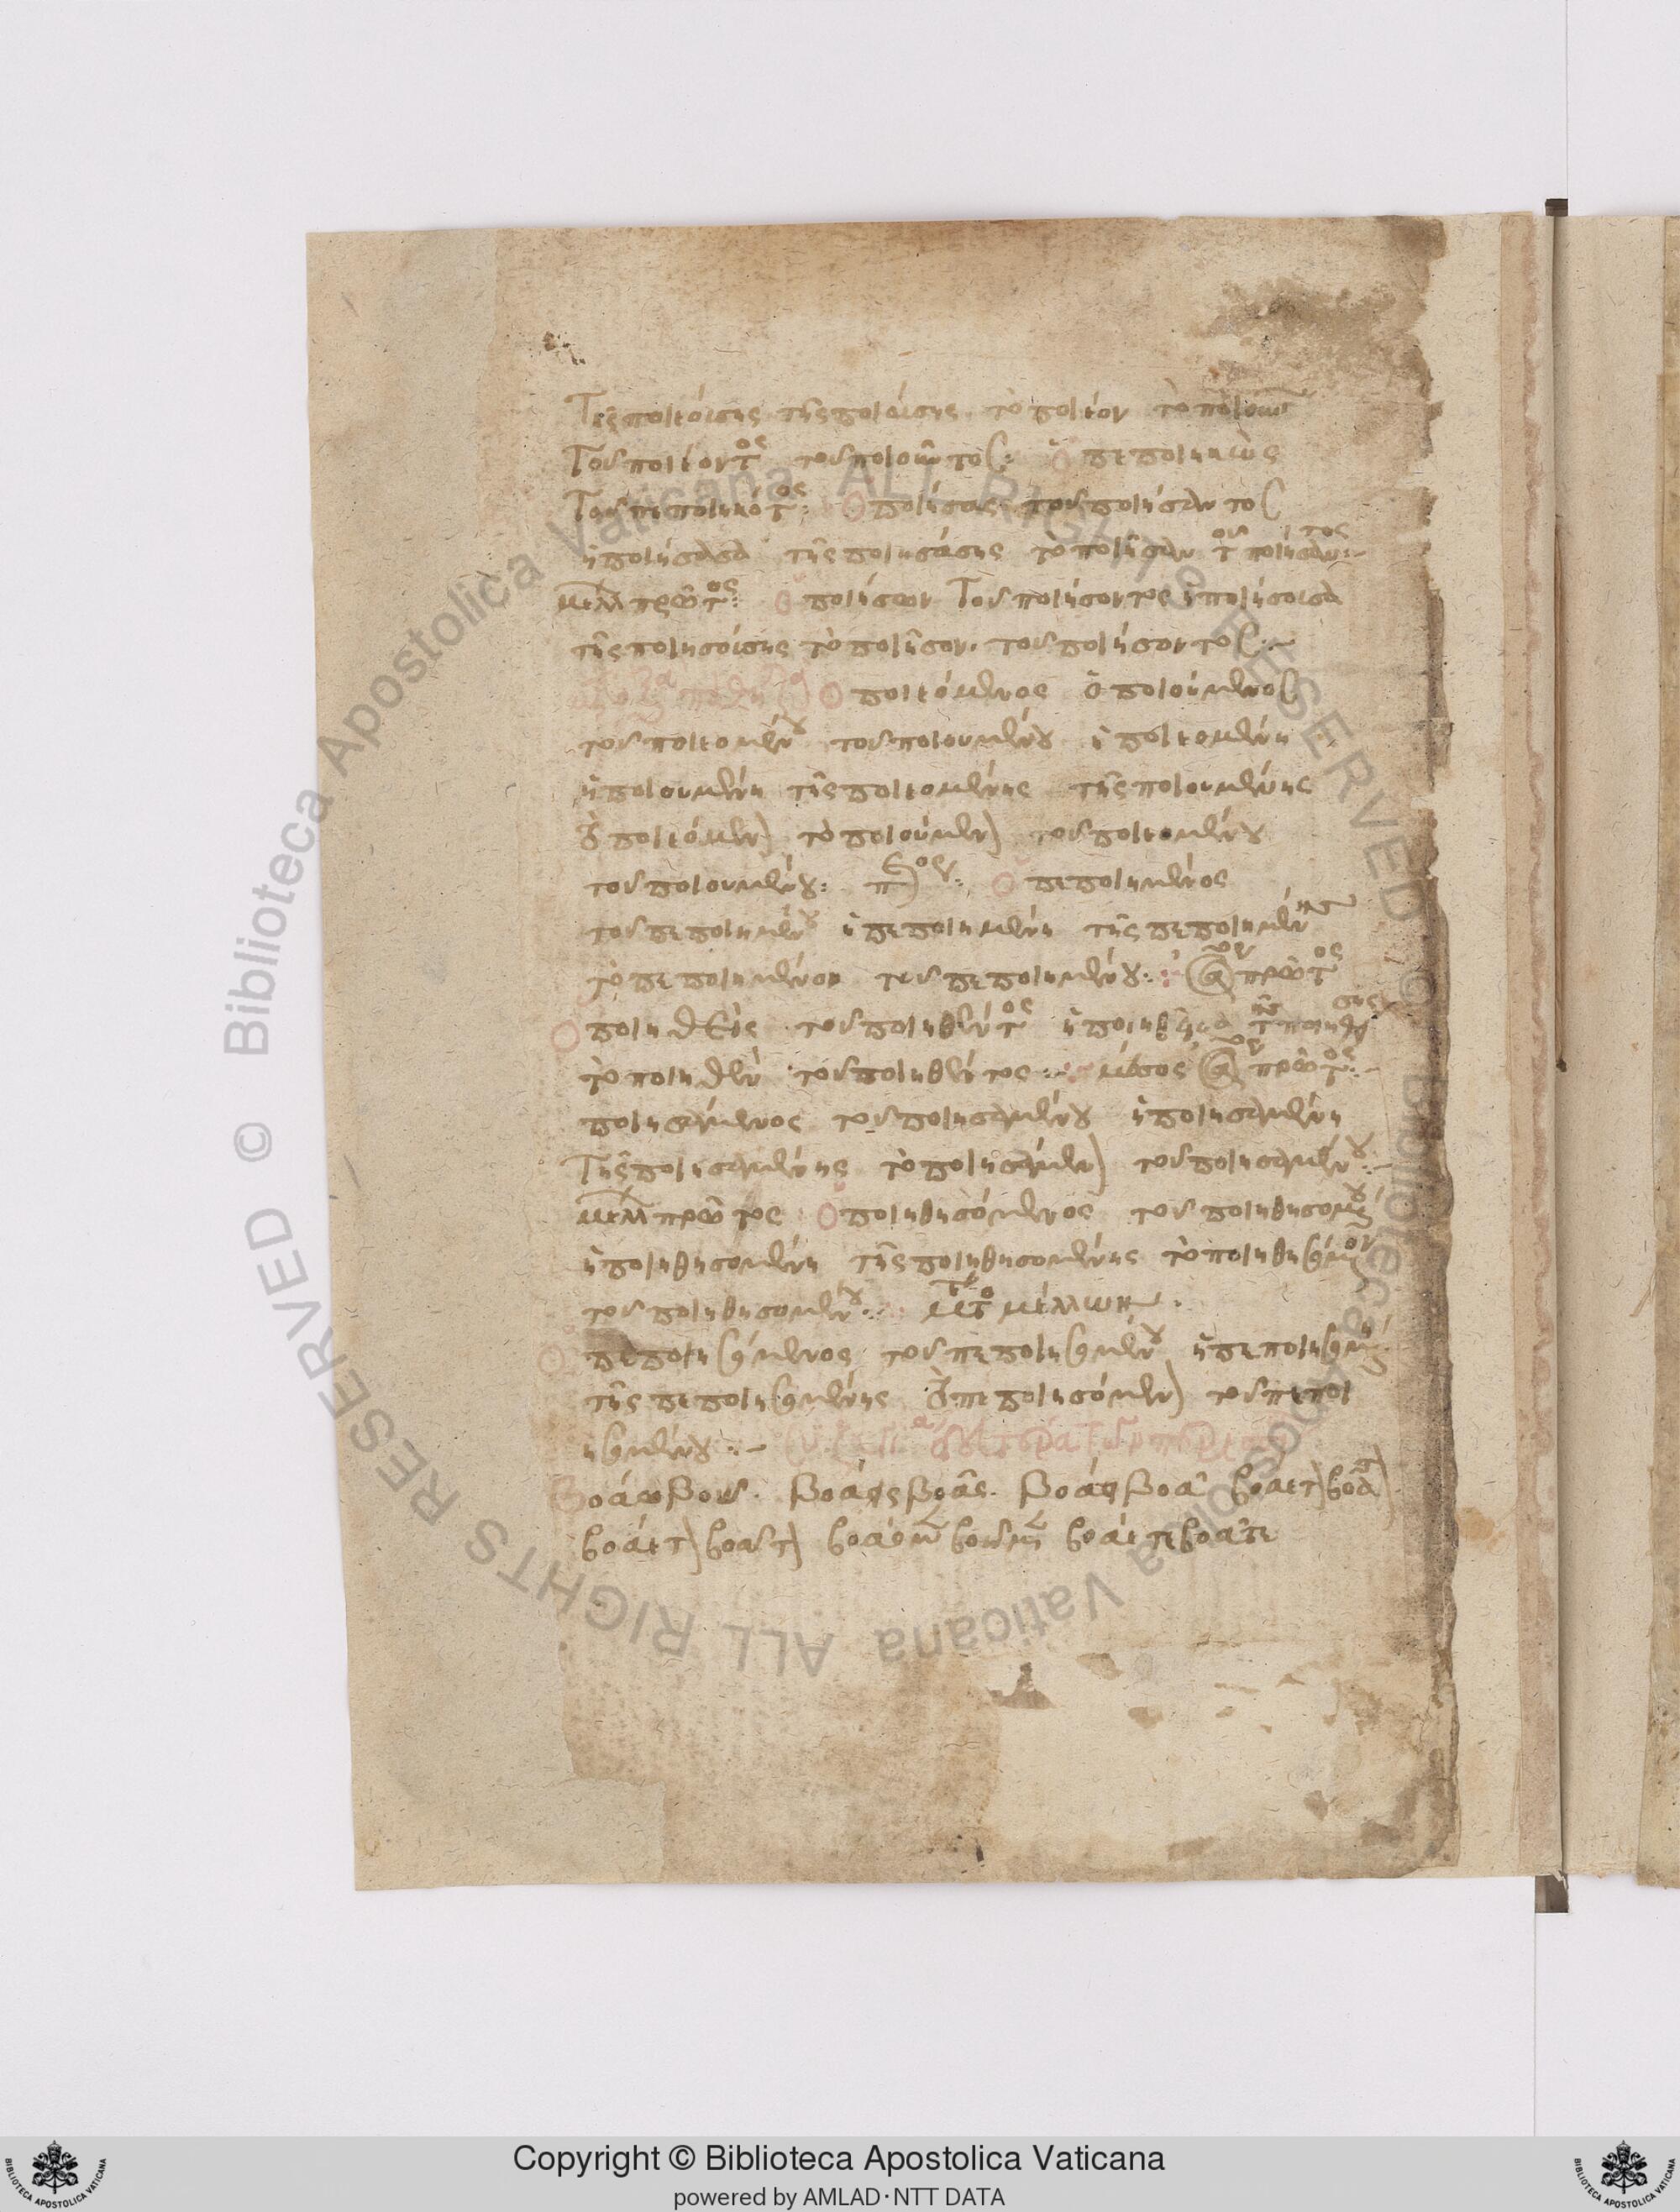 Τῆς ποιεούσης τῆς ποιούσης τὸ ποιέον τὸ ποιοῦν
Τοῦ ποιέοντος τοῦ ποιοῦντος: Ὁ πεποιηκὼς
Τοῦ πεποιηκότος: Ὁ ποιήσας τοῦ ποιήσαντος
ἡ ποιήσασα τῆς ποιησάσης τὸ ποιῆσαν τοῦ ποιήσαντος:-
μελλ πρῶτος: ὁ ποιήσων Τοῦ ποιήσοντος ἡ ποιήσουσα
τῆς ποιησούσης τὸ ποιῆσον. τοῦ ποιήσοντος:-
Ὁ ποιεόμενος ὁ ποιούμενος
τοῦ ποιεομένου τοῦ ποιουμένου ἡ ποιεομένη
ἡ ποιουμένη τῆς ποιεομένης τῆς ποιουμένης
τὸ ποιεόμενον τὸ ποιούμενον τοῦ ποιεομένου
τοῦ ποιουμένου: Ὁ πεποιημένος
τοῦ πεποιημένου ἡ πεποιημένη τῆς πεποιημένης
τὸ πεποιημένον τοῦ πεποιημένου: πρῶτος
Ὁ ποιηθεὶς τοῦ ποιηθέντος ἡ ποιηθεῖσα τῆς ποιηθείσης
τὸ ποιηθὲν τοῦ ποιηθέντος:- μέσος πρῶτος:-
ποιησάμενος τοῦ ποιησαμένου ἡ ποιησαμένη
Τῆς ποιησαμένης τὸ ποιησάμενον τοῦ ποιησαμένου:-
μελλ πρῶτος Ὁ ποιηθησόμενος τοῦ ποιηθησομένου
ἡ ποιηθησομένη τῆς ποιηθησομένης τὸ ποιηθησόμενον
τοῦ ποιηθησομένου: μετ μέλλων.
Ὁ πεποιησόμενος τοῦ πεποιησομένου ἡ πεποιησομένη
τῆς πεποιησομένης τὸ πεποιησόμενον τοῦ πεποι
ησομένου:-
Βοάω βοῶ. βοάεις βοᾷς. βοάει βοᾷ βοάετον βοᾶτον
βοάετον βοᾶτον βοάομεν βοῶμεν βοάετε βοᾶτε